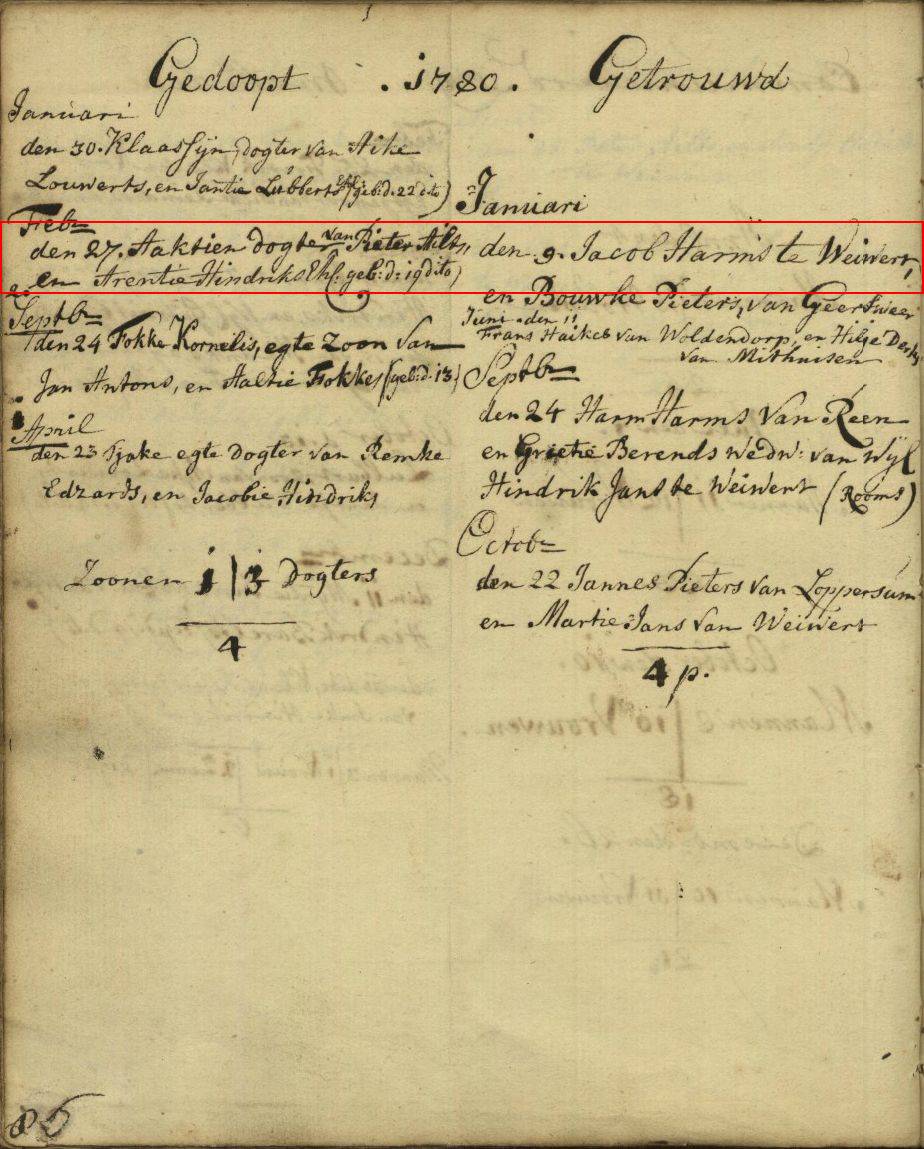 Gedoopt . 1780. Getrouwd
Januari
den 30. Klaassijn, dogter van Aike
Louwerts, en Jantie Lubberts (geb: d. 22 dito)
Febr
den 27. Aaktien dogter van Pieter Ailts,
en Arentie Hindriks Ehl. geb: d: 19 dito)
Septbr
den 24 Fokke Kornelis, egte Zoon van
Jan Antons, en Aaltie Fokkes (geb: d. 13)
April
den 23 Sjake egte dogter van Remke
Edzards, en Jacobie Hindriks
Zoonen 1 | 3 Dogters
4
Januari
den 9. Jacob Harms te Weiwert,
en Bouwke Pieters, van Geersweer
Juni den 11
Frans Haikes van Woldendorp, en Hilje Derks
van Mithuisen
Septbr
den 24 Harm Harms van Reen
en Grietie Berends wedw: van wijl
Hindrik Jans te Weiwert (Rooms)
Octobr
den 22 Jannes Pieters van Loppersum
en Martie Jans van Weiwert
4 p.
86